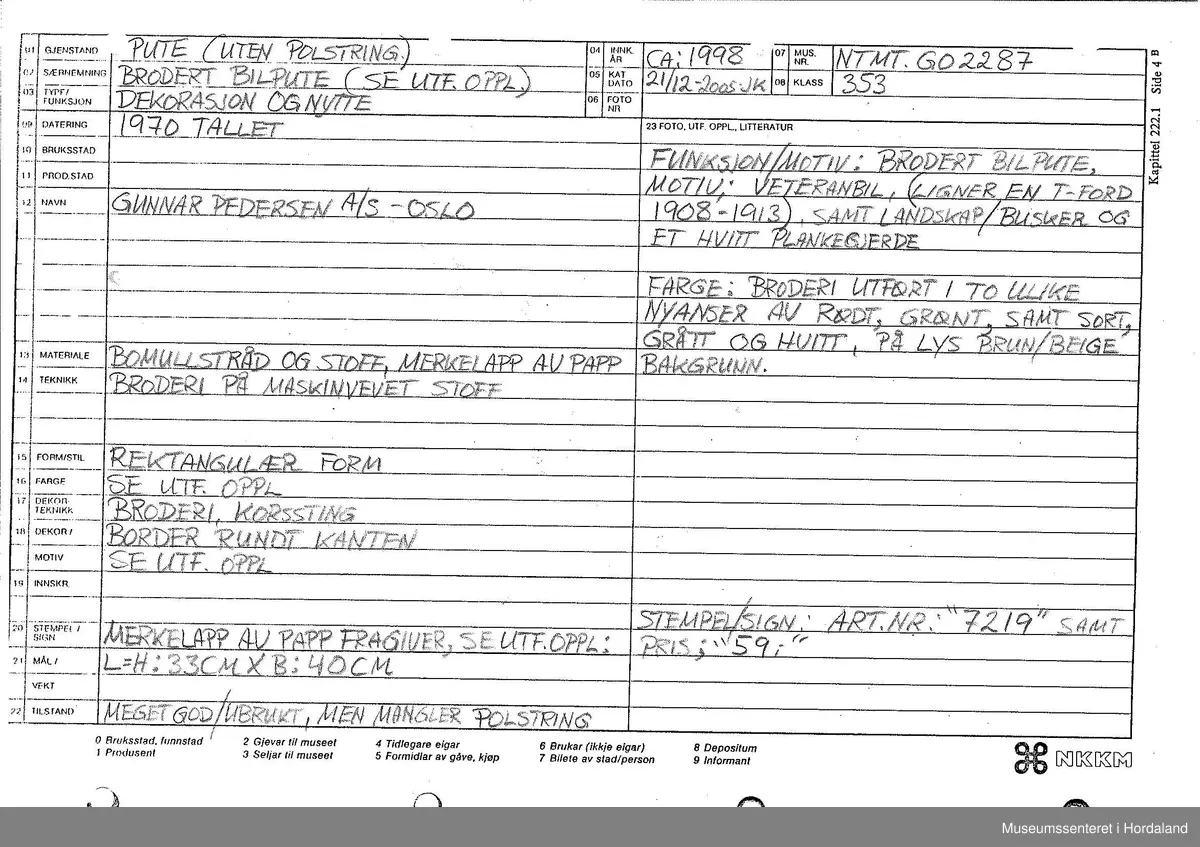 01 GJENSTAND PUTE (UTEN POLSTRING.)
02 SÆRNEMNING BRODERT BILPUTE (SE UTF. OPPL.)
03 TYPE/ FUNKSJON DEKORASJON OG NYTTE
04 INNK. ÅR CA: 1998
05 KAT DATO 21/12-2005-JK
06 FOTO NR
07 MUS. NR. NTMT. GO2287
08 KLASS 353
Kapittel 222.1 Side 4 B
09 DATERING 1970 TALLET
10 BRUKSSTAD
11 PROD.STAD
12 NAVN GUNNAR PEDERSEN A/S - OSLO
13 MATERIALE BOMULLSTRÅD OG STOFF, MERKELAPP AV PAPP
14 TEKNIKK BRODERI PÅ MASKINVEVET STOFF
15 FORM/STIL REKTANGULÆR FORM
16 FARGE SE UTF. OPPL
17 DEKOR- TEKNIKK BRODERI, KORSSTING
18 DEKOR / BORDER RUNDT KANTEN
MOTIV SE UTF. OPPL
19 INNSKR.
20 STEMPEL / SIGN MERKELAPP AV PAPP FRAGIVER, SE UTF. OPPL:
21 MÅL / L=H: 33CM X B: 40CM
VEKT
22 TILSTAND MEGET GOD/UBRUKT, MEN MANGLER POLSTRING
23 FOTO, UTF. OPPL., LITTERATUR
FUNKSJON/MOTIV: BRODERT BILPUTE,
MOTIV: VETERANBIL, (LIGNER EN T-FORD
1908-1913), SAMT LANDSKAP/BUSKER OG
ET HVITT PLANKEGJERDE
FARGE: BRODERI UTFØRT I TO ULIKE
NYANSER AV RØDT, GRØNT, SAMT SORT,
GRÅTT OG HVITT, PÅ LYS BRUN/BEIGE
BAKGRUNN.
STEMPEL/SIGN: ART.NR.: "7219" SAMT
PRIS; "59,-"
0 Bruksstad, funnstad
1 Produsent
2 Gjevar til museet
3 Seljar til museet
4 Tidlegare eigar
5 Formidlar av gåve, kjøp
6 Brukar (ikkje eigar)
7 Bilete av stad/person
8 Depositum
9 Informant
NKKM
Museumssenteret i Hordaland